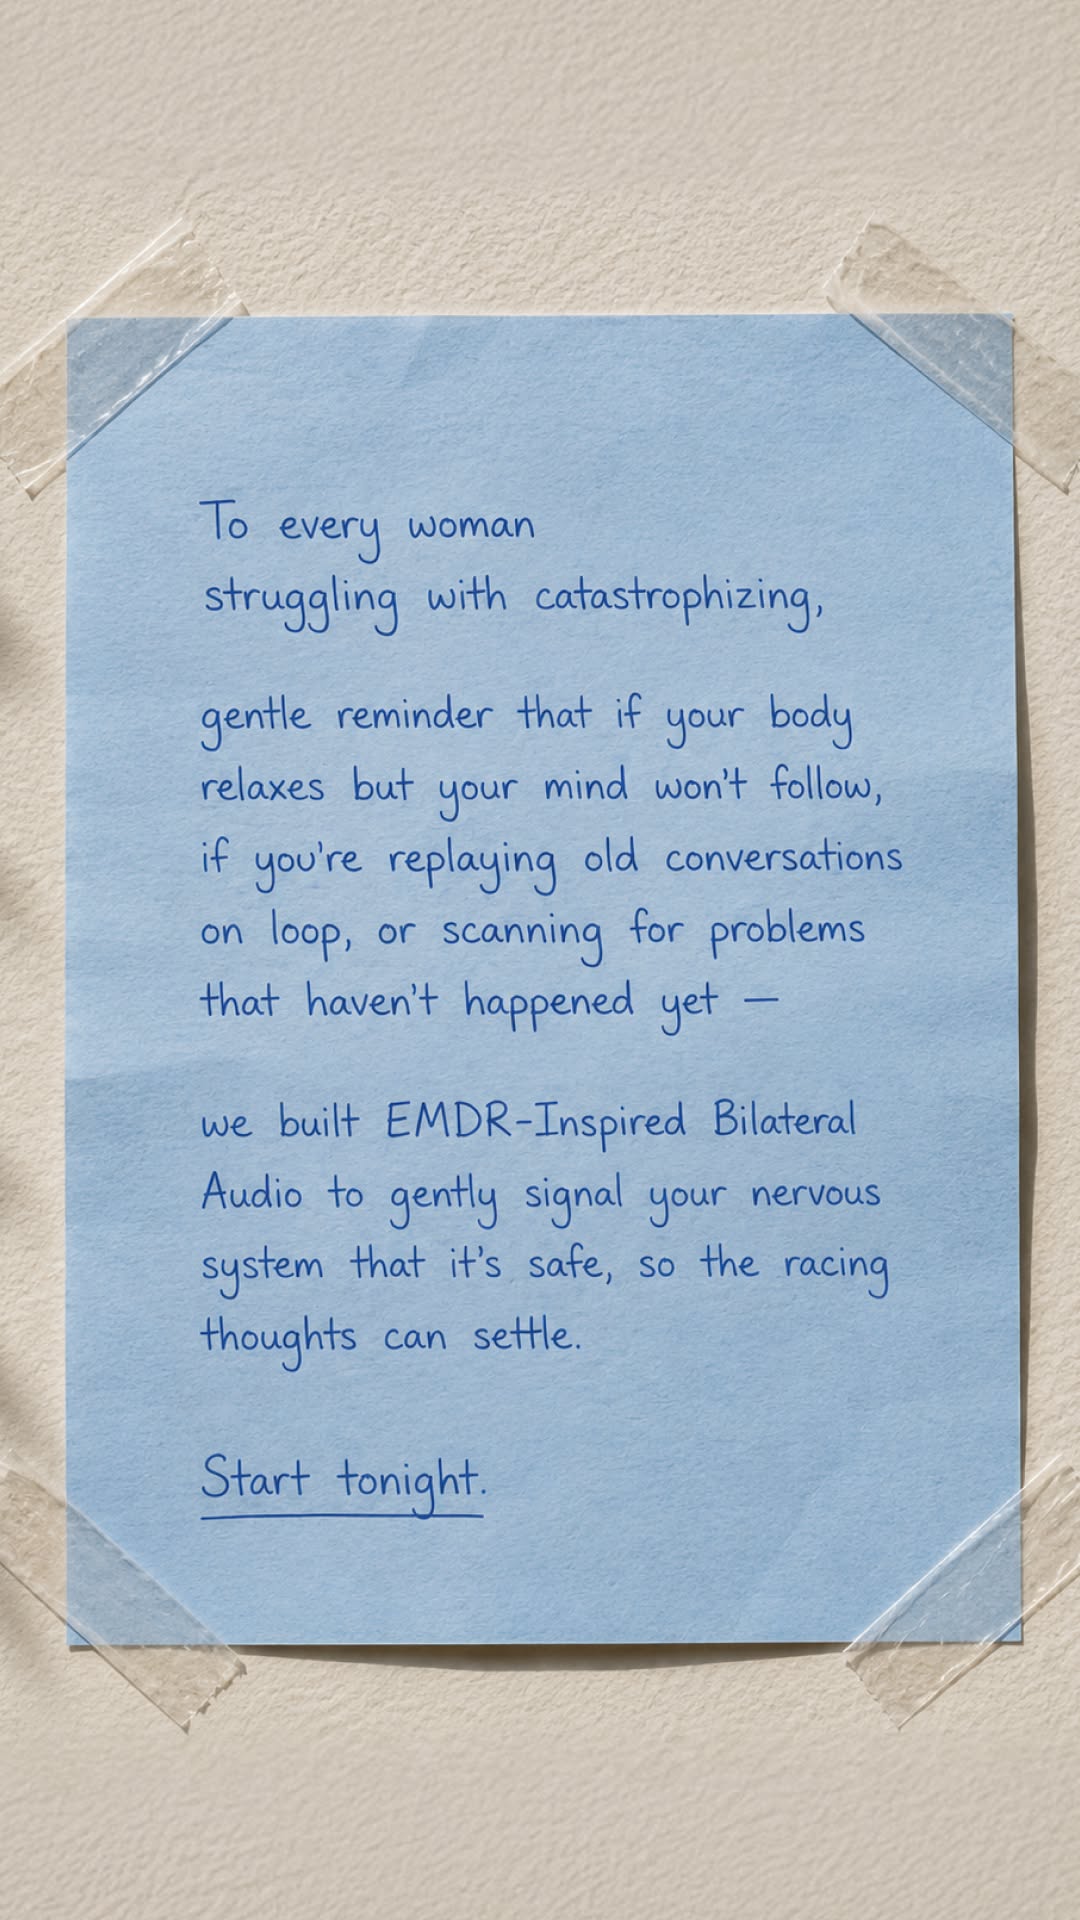 To every woman
struggling with catastrophizing,
gentle reminder that if your body
relaxes but your mind won't follow,
if you're replaying old conversations
on loop, or scanning for problems
that haven't happened yet —
we built EMDR-Inspired Bilateral
Audio to gently signal your nervous
system that it's safe, so the racing
thoughts can settle.
Start tonight.